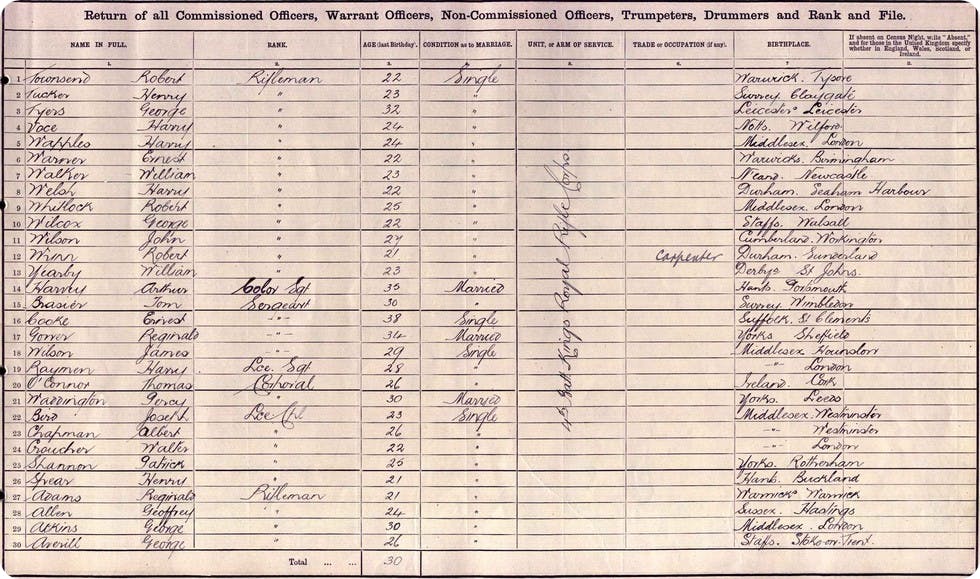 Return of all Commissioned Officers, Warrant Officers, Non-Commissioned Officers, Trumpeters, Drummers and Rank and File.
NAME IN FULL. RANK. AGE (last Birthday). CONDITION as to MARRIAGE. UNIT, or ARM OF SERVICE. TRADE or OCCUPATION (if any). BIRTHPLACE. If absent on Census Night, write "Absent," and for those in the United Kingdom specify whether in England, Wales, Scotland, or Ireland.
1. 2. 3. 4. 5. 6. 7. 8.
1 Townsend Robert Rifleman 22 Single Warwick. Tysoe
2 Tucker Henry " 23 " Surrey. Claygate
3 Tyers George " 32 " Leicester Leicester
4 Voce Harry " 24 " Notts. Wilford
5 Wapples Harry " 24 " Middlesex. London
6 Warner Ernest " 22 " Warwicks. Birmingham
7 Walker William " 23 " N'land. Newcastle
8 Welsh Harry " 22 " Durham. Seaham Harbour
9 Whitlock Robert " 25 " Middlesex. London
10 Wilcox George " 22 " Staffs. Walsall
11 Wilson John " 27 " Cumberland. Workington
12 Robert " 21 " Carpenter Durham. Sunderland
13 Yearby William " 23 " Derbys St Johns.
14 Harvey Arthur Color Sgt 35 Married Hants. Portsmouth
15 Brasier Tom Sergeant 30 " Surrey. Wimbledon
16 Cooke Ernest -"- 38 Single Suffolk. St Clements
17 Gower Reginald -"- 34 Married Yorks Sheffield
18 Wilson James -"- 29 Single Middlesex Hounslow
19 Raymen Harry Lce. Sgt 28 " -"- London
20 O'Connor Thomas Corporal 26 " Ireland. Cork
21 Waddington Percy " 30 Married Yorks. Leeds
22 Bird Joseph Lce Cpl 23 Single Middlesex. Westminster
23 Chapman Albert " 26 " -"- Westminster
24 Croucher Walter " 22 " -"- London
25 Shannon Patrick " 25 " Yorks. Rotherham
26 Spear Henry " 21 " Hants. Buckland
27 Adams Reginald Rifleman 21 " Warwicks Warwick
28 Allen Geoffrey " 24 " Sussex. Hastings
29 Atkins George " 30 " Middlesex. London
30 Averill George " 26 " Staffs. Stoke-on-Trent.
4th Batt. Kings Royal Rifle Corps.
Total ... ... 30